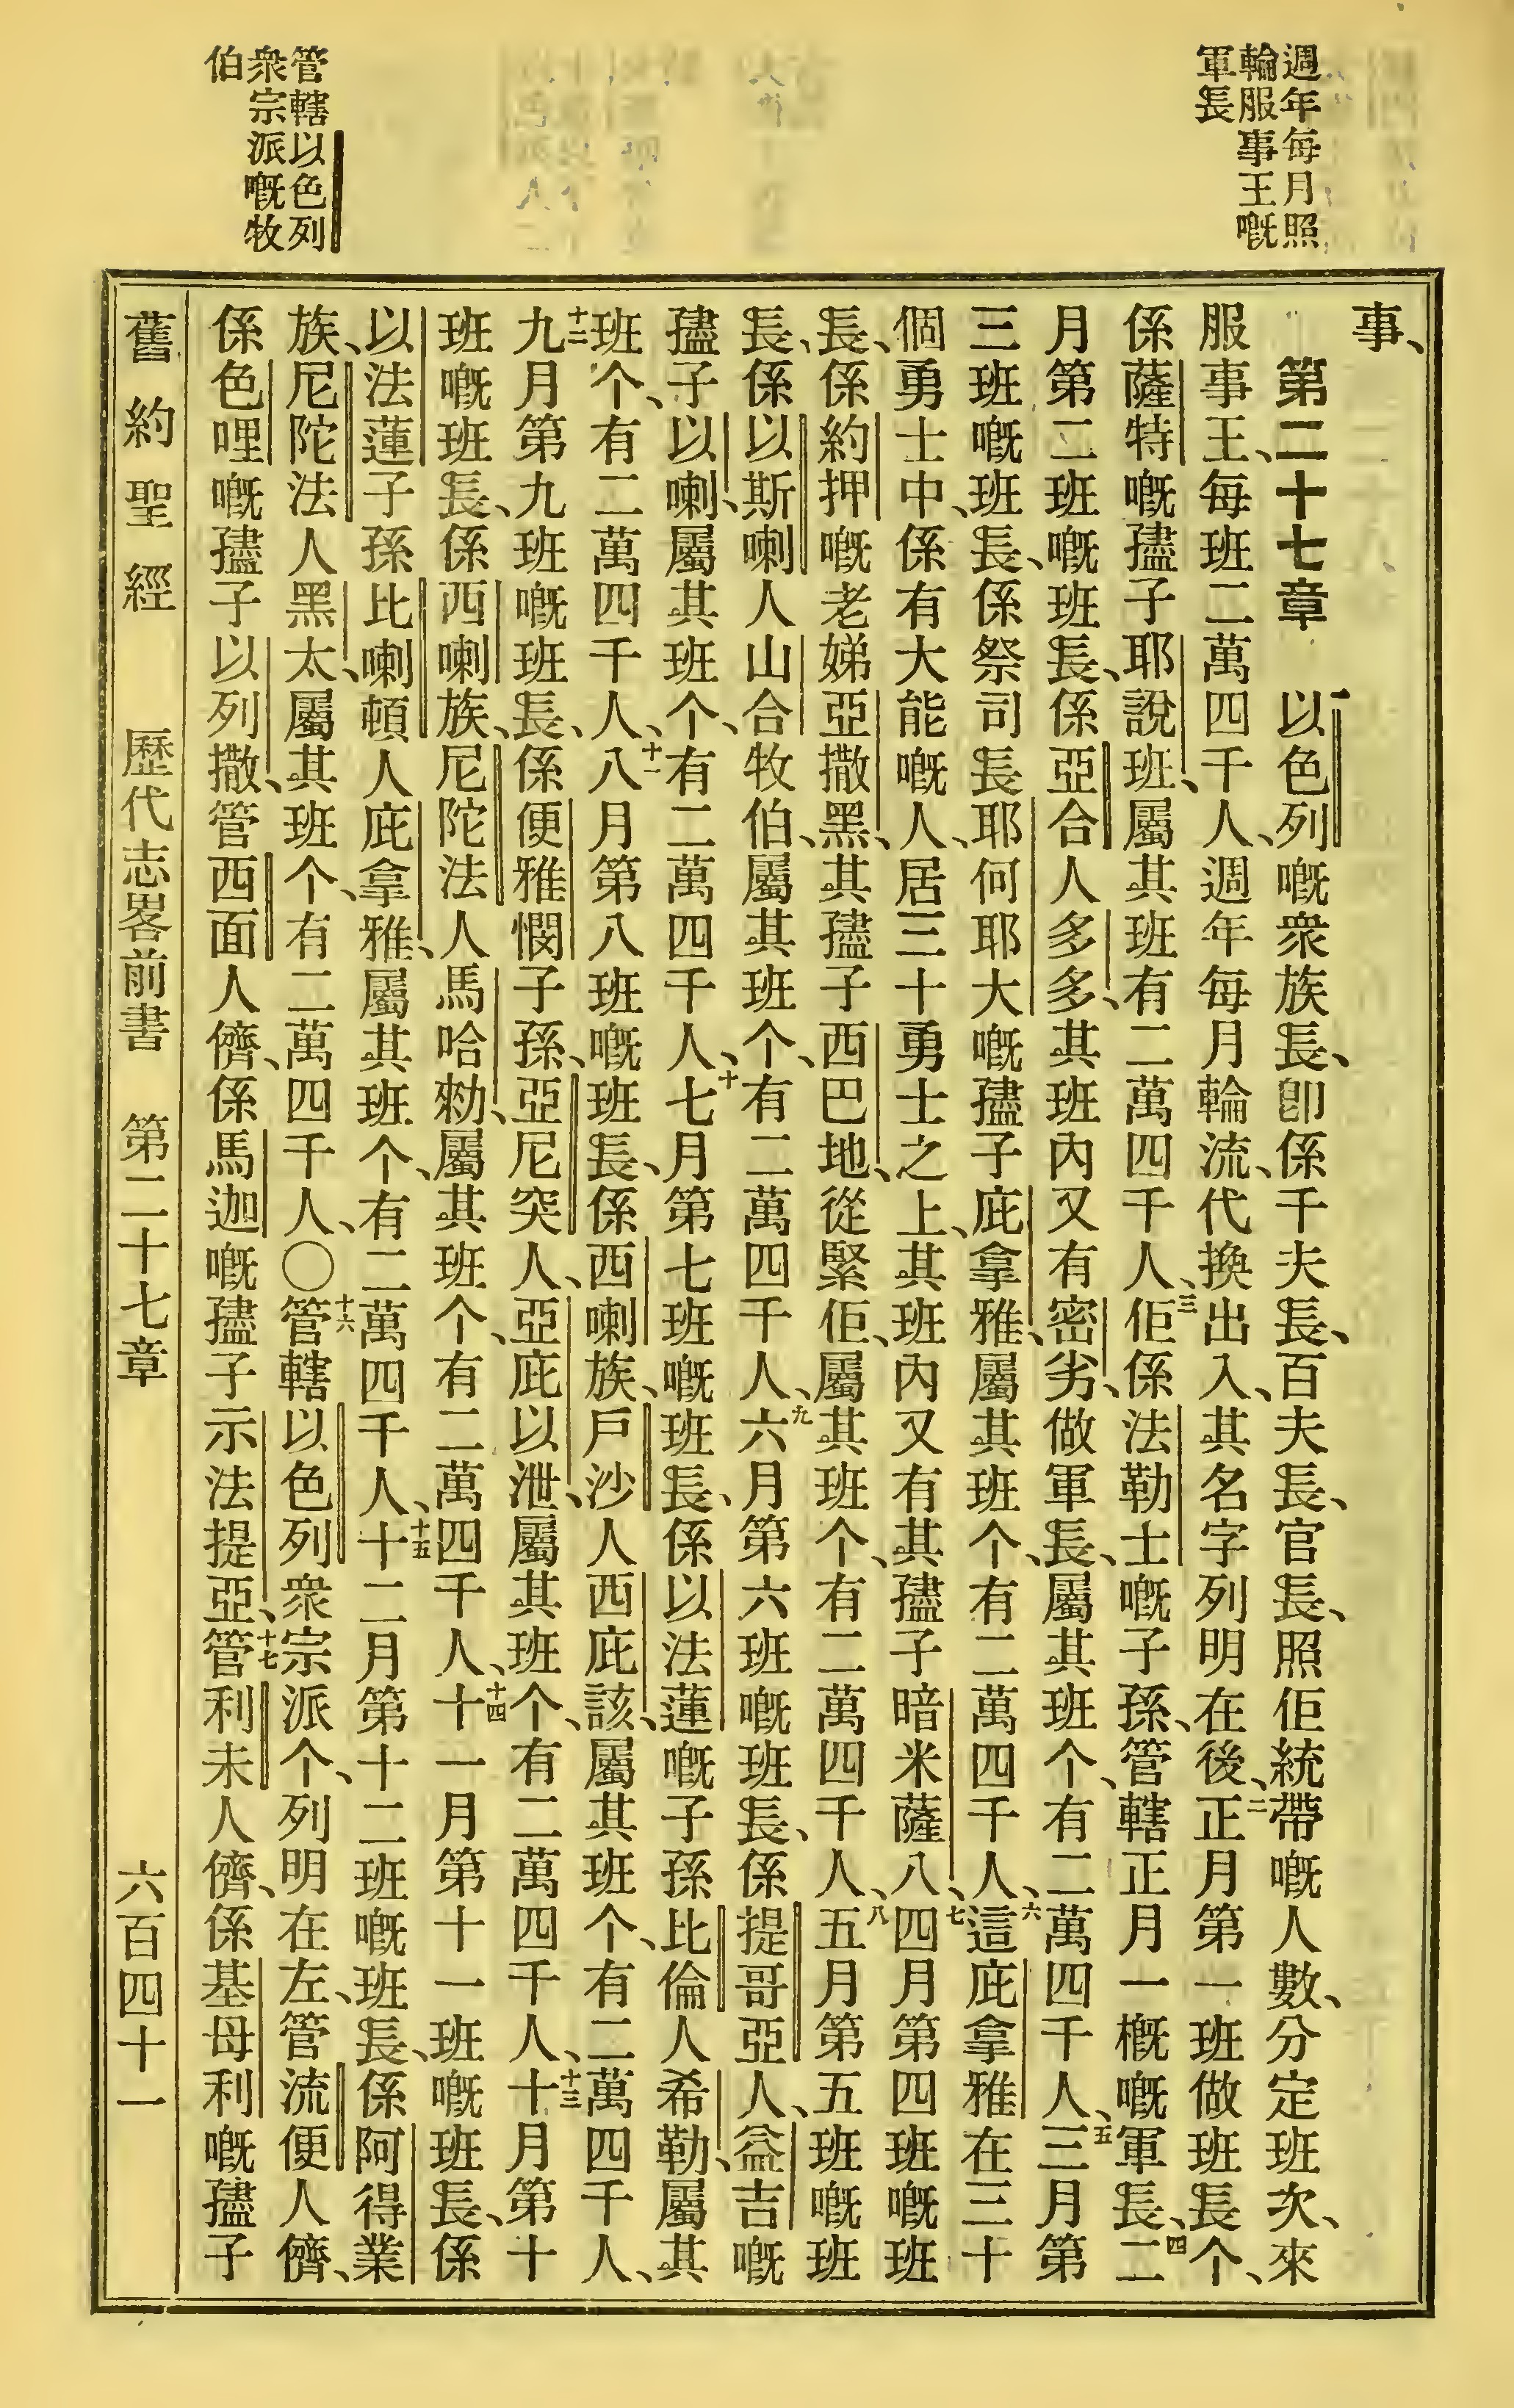 週年每月照
輪服事王嘅
軍長
管轄以色列
衆宗派嘅牧
伯
事、
第二十七章　一以色列嘅衆族長、卽係千夫長、百夫長、官長、照佢統帶嘅人數、分定班次、來
服事王、每班二萬四千人、週年每月輪流、代換出入、其名字列明在後、二正月第一班做班長个、
係薩特嘅𡥧子耶說班、屬其班有二萬四千人、三佢係法勒士嘅子孫、管轄正月一概嘅軍長、四二
月第二班嘅班長、係亞合人多多、其班內又有密劣、做軍長、屬其班个、有二萬四千人、五三月第
三班嘅班長、係祭司長耶何耶大嘅𡥧子庇拿雅、屬其班个、有二萬四千人、六這庇拿雅在三十
個勇士中、係有大能嘅人、居三十勇士之上、其班內又有其𡥧子暗米薩八、七四月第四班嘅班
長、係約押嘅老娣亞撒黑、其𡥧子西巴地、從緊佢、屬其班个、有二萬四千人、八五月第五班嘅班
長、係以斯喇人山合牧伯、屬其班个、有二萬四千人、九六月第六班嘅班長、係提哥亞人、益吉嘅
𡥧子以喇、屬其班个、有二萬四千人、十七月第七班嘅班長、係以法蓮嘅子孫比倫人希勒、屬其
班个、有二萬四千人、十一八月第八班嘅班長、係西喇族、戶沙人西庇該、屬其班个、有二萬四千人、
十二九月第九班嘅班長、係便雅憫子孫、亞尼突人、亞庇以泄、屬其班个、有二萬四千人、十三十月第十
班嘅班長、係西喇族、尼陀法人馬哈勑、屬其班个、有二萬四千人、十四十一月第十一班嘅班長、係
以法蓮子孫比喇頓人庇拿雅、屬其班个、有二萬四千人、十五十二月第十二班嘅班長、係阿得業
族、尼陀法人黑太、屬其班个、有二萬四千人、〇十六管轄以色列衆宗派个、列明在左、管流便人儕、
係色哩嘅𡥧子以列撒、管西面人儕、係馬迦嘅𡥧子示法提亞、十七管利未人儕、係基母利嘅𡥧子
舊約聖經　歷代志畧前書　第二十七章　六百四十一